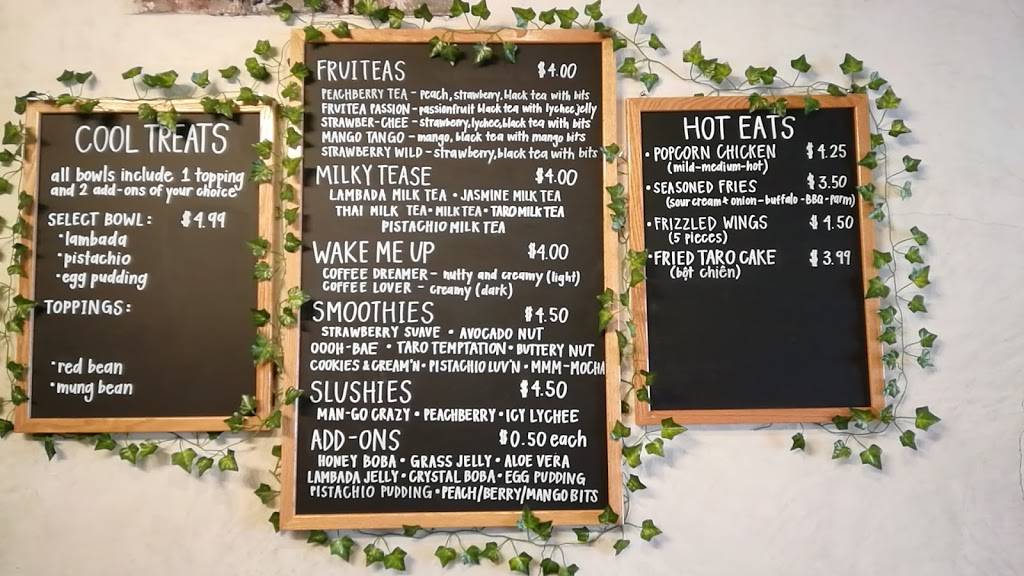 COOL TREATS
all bowls include 1 topping
and 2 add-ons of your choice
SELECT BOWL: $4.99
•lambada
•pistachio
•egg pudding
TOPPINGS:
•red bean
•mung bean
FRUITEAS $4.00
PEACHBERRY TEA - peach, strawberry, black tea with bits
FRUITEA PASSION - passionfruit black tea with lychee jelly
STRAWBER-CHEE - strawberry, lychee, black tea with bits
MANGO TANGO - mango, black tea with mango bits
STRAWBERRY WILD - strawberry, black tea with bits
MILKY TEASE $4.00
LAMBADA MILK TEA • JASMINE MILK TEA
THAI MILK TEA • MILK TEA • TARO MILK TEA
PISTACHIO MILK TEA
WAKE ME UP $4.00
COFFEE DREAMER - nutty and creamy (light)
COFFEE LOVER - creamy (dark)
SMOOTHIES $4.50
STRAWBERRY SUAVE • AVOCADO NUT
OOOH-BAE • TARO TEMPTATION • BUTTERY NUT
COOKIES & CREAM'N • PISTACHIO LUV'N • MMM-MOCHA
SLUSHIES $4.50
MAN-GO CRAZY • PEACHBERRY • ICY LYCHEE
ADD-ONS $0.50 each
HONEY BOBA • GRASS JELLY • ALOE VERA
LAMBADA JELLY • CRYSTAL BOBA • EGG PUDDING
PISTACHIO PUDDING • PEACH/BERRY/MANGO BITS
HOT EATS
• POPCORN CHICKEN $4.25
(mild-medium-hot)
• SEASONED FRIES $3.50
(sour cream + onion - buffalo - BBQ - parm)
• FRIZZLED WINGS $4.50
(5 pieces)
• FRIED TARO CAKE $3.99
(bột chiên)